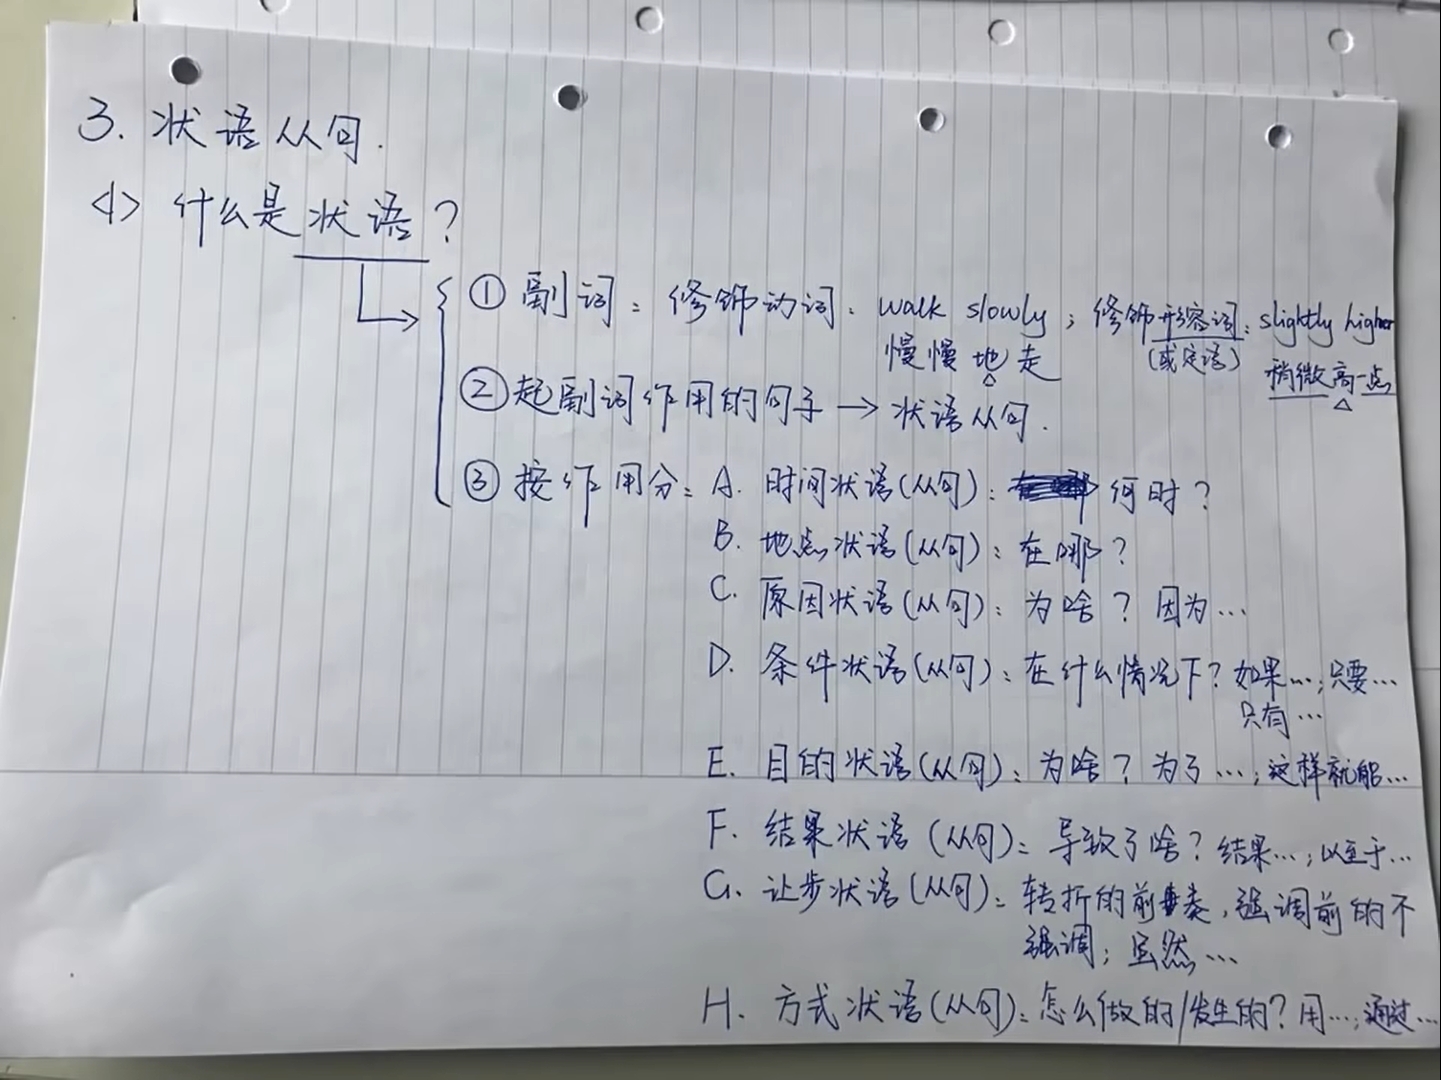 3. 状语从句.
<1> 什么是状语?
① 副词: 修饰动词: walk slowly; 修饰形容词: slightly higher
慢慢地走 (或定语) 稍微高一点
② 起副词作用的句子 → 状语从句.
③ 按作用分: A. 时间状语(从句): 何时?
B. 地点状语(从句): 在哪?
C. 原因状语(从句): 为啥? 因为…
D. 条件状语(从句): 在什么情况下? 如果…; 只要…
只有…
E. 目的状语(从句): 为啥? 为了…; 这样就能…
F. 结果状语(从句): 导致了啥? 结果…; 以至于…
G. 让步状语(从句): 转折的前奏, 强调前的不
强调; 虽然…
H. 方式状语(从句): 怎么做的/发生的? 用…; 通过…